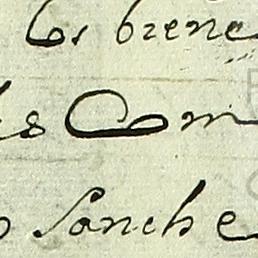 los brene
es Com
o Sanche